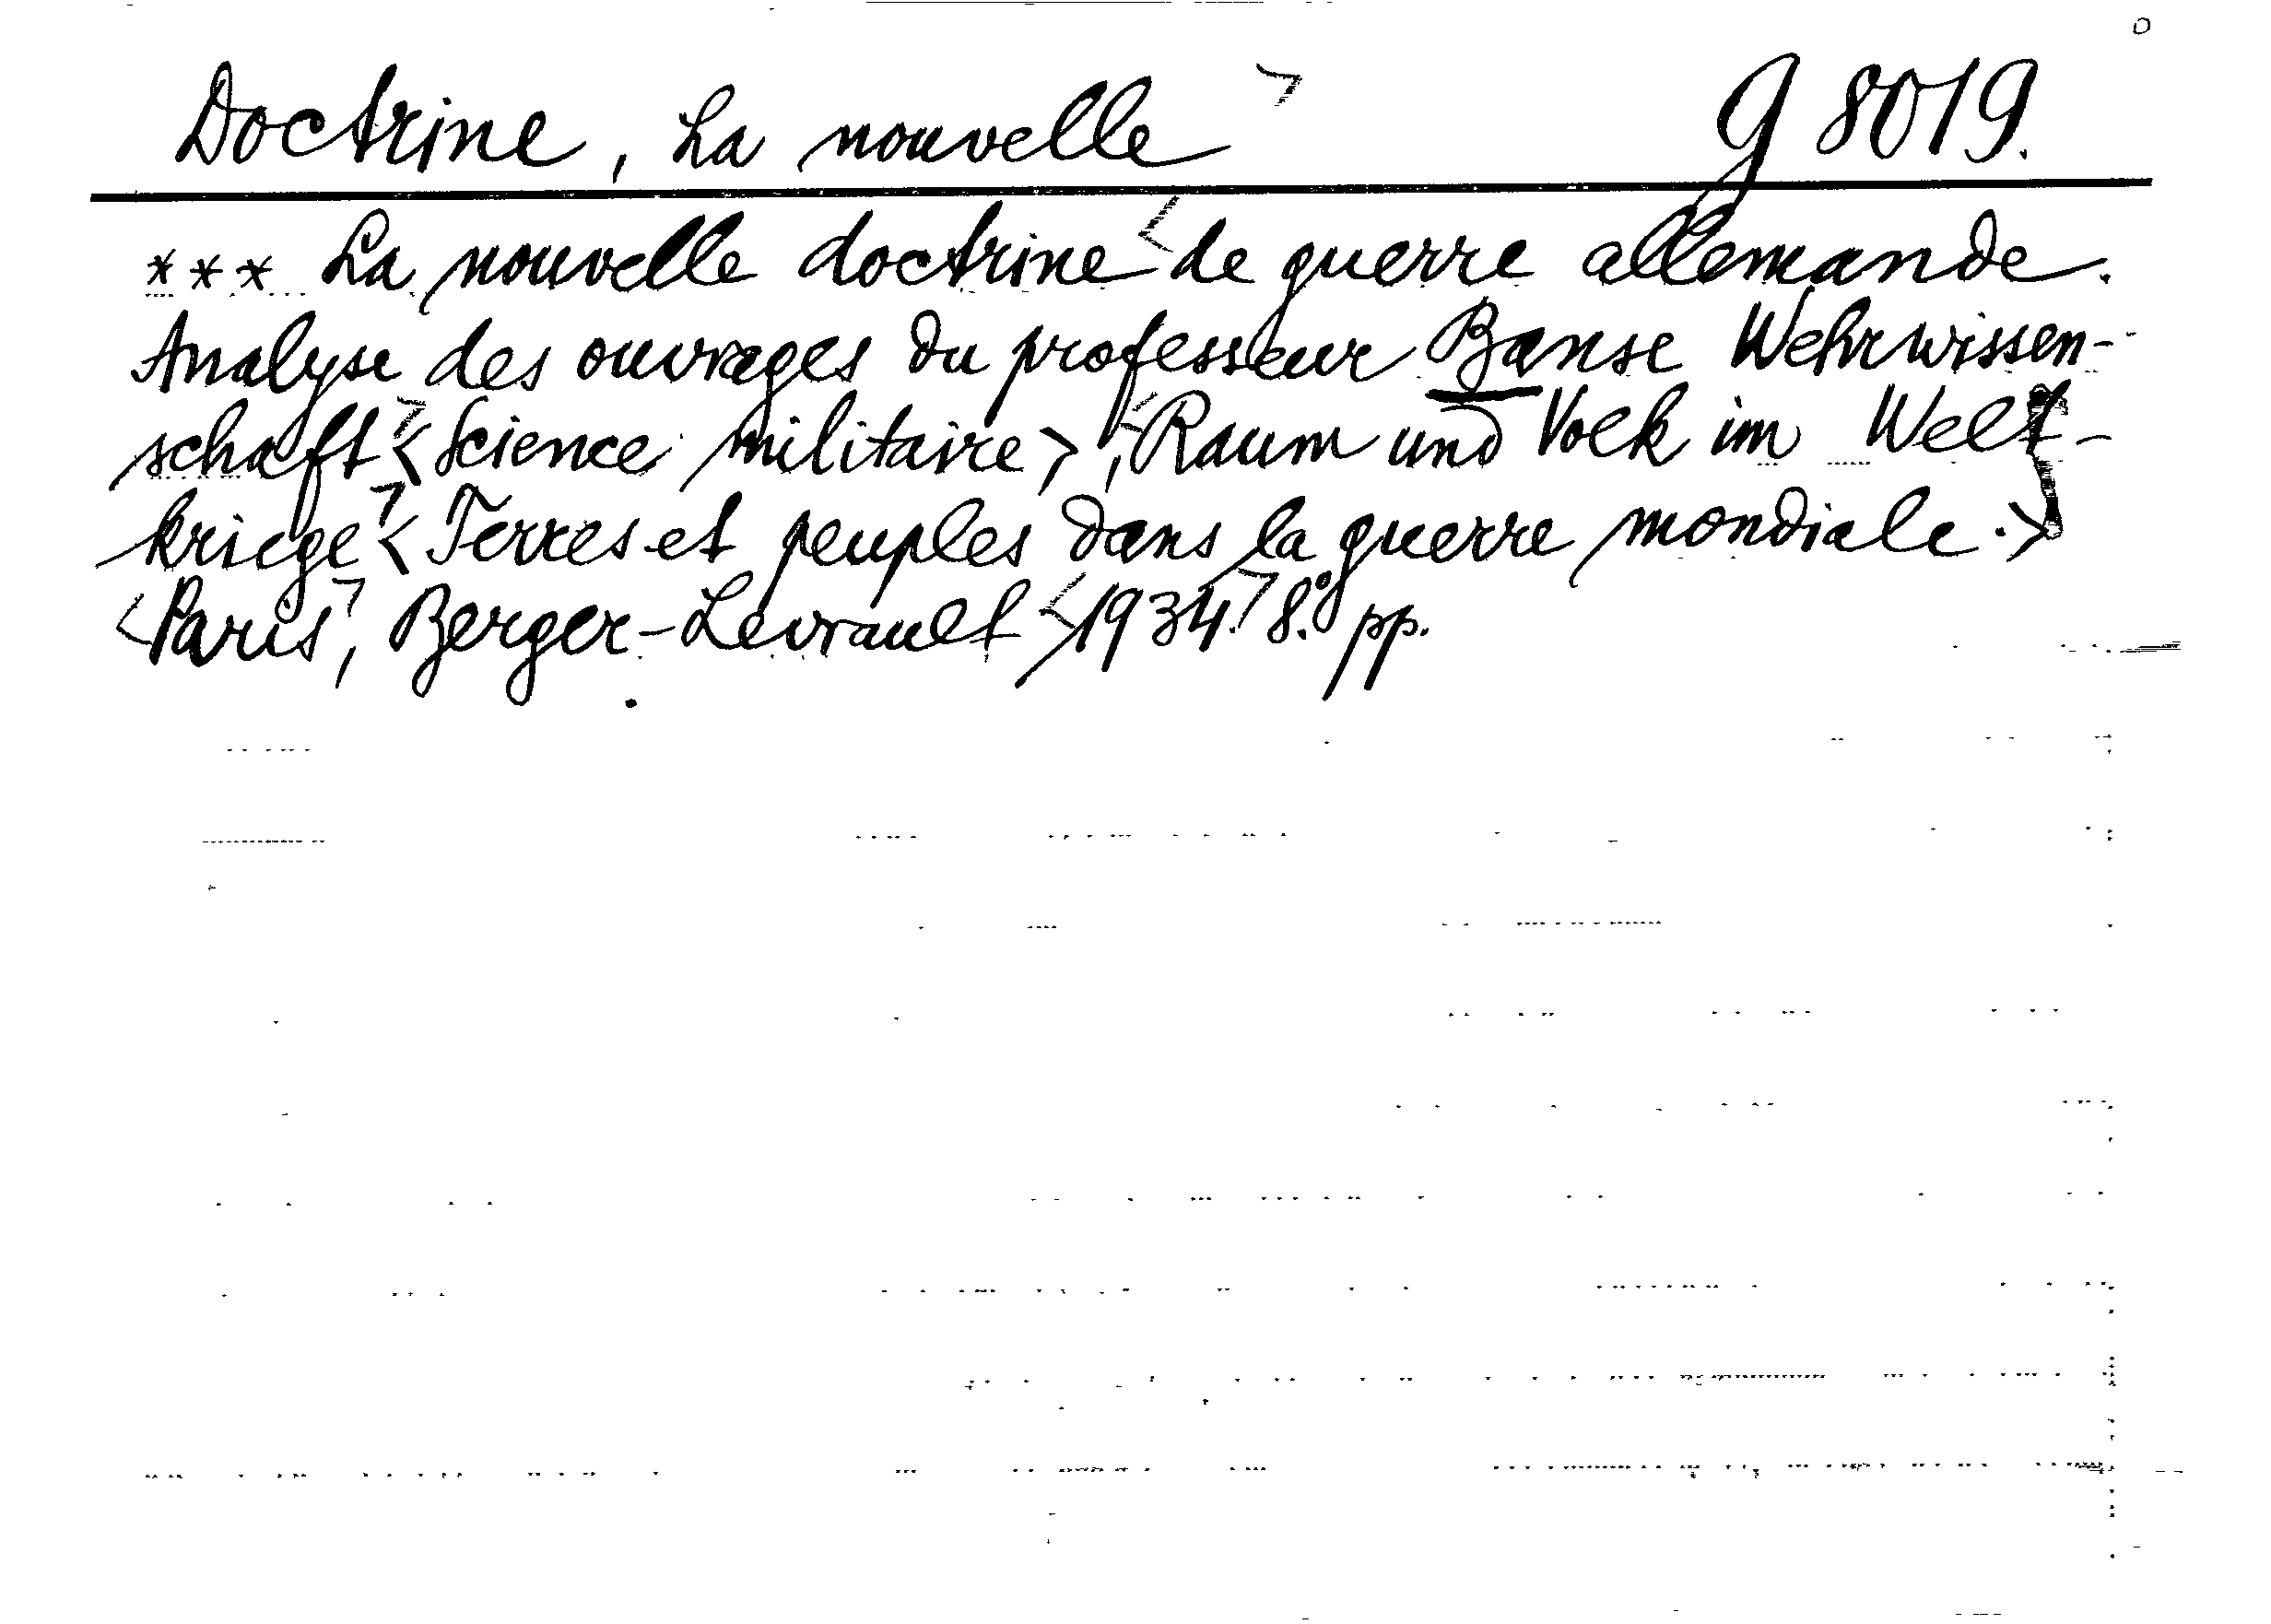 Doctrine, La nouvelle g 8019.
*** La nouvelle doctrine de guerre allemande.
Analyse des ouvrages du professeur Banse Wehrwissen-
schaft <Science militaire>, Raum und Volk im Welt-
kriege <Terres et peuples dans la guerre mondiale.>
Paris, Berger-Levrault 1934. 8.° pp.